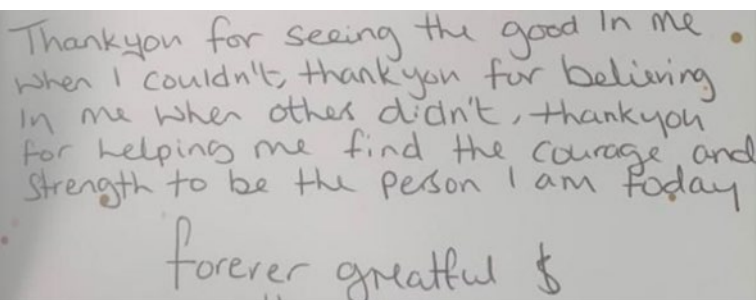 Thankyou for seeing the good in me
when I couldn't, thankyou for believing
in me when other didn't, thankyou
for helping me find the courage and
strength to be the person I am today
forever greatful $